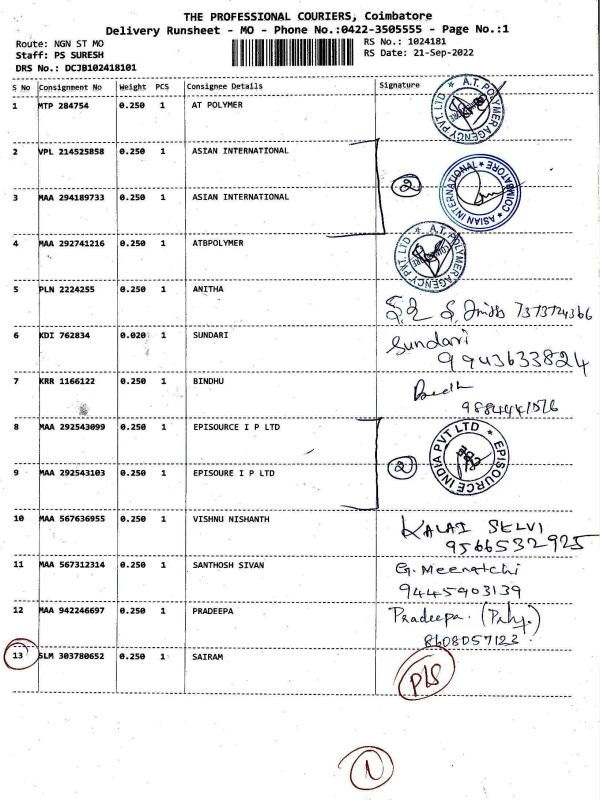 THE PROFESSIONAL COURIERS, Coimbatore
Delivery Runsheet - MO - Phone No.:0422-3505555 - Page No.:1
Route: NGN ST MO RS No.: 1024181
Staff: PS SURESH RS Date: 21-Sep-2022
DRS No.: DCJB102418101
S No Consignment No Weight PCS Consignee Details Signature
1 MTP 284754 0.250 1 AT POLYMER
A.T. POLYMER AGENCY PVT. LTD
2 VPL 214525858 0.250 1 ASIAN INTERNATIONAL
2
ASIAN INTERNATIONAL COIMBATORE
3 MAA 294189733 0.250 1 ASIAN INTERNATIONAL
4 MAA 292741216 0.250 1 ATBPOLYMER
A.T. POLYMER AGENCY PVT. LTD
5 PLN 2224255 0.250 1 ANITHA
7373724366
6 KDI 762834 0.020 1 SUNDARI
Sundari
9943633824
7 KRR 1166122 0.250 1 BINDHU
8 MAA 292543099 0.250 1 EPISOURCE I P LTD
EPISOURCE INDIA PVT LTD
2
9 MAA 292543103 0.250 1 EPISOURE I P LTD
10 MAA 567636955 0.250 1 VISHNU NISHANTH
KALAI SELVI
9566532925
11 MAA 567312314 0.250 1 SANTHOSH SIVAN
G. Meenatchi
9445903139
12 MAA 942246697 0.250 1 PRADEEPA
Pradeepa.
8608057123
13 SLM 303780652 0.250 1 SAIRAM